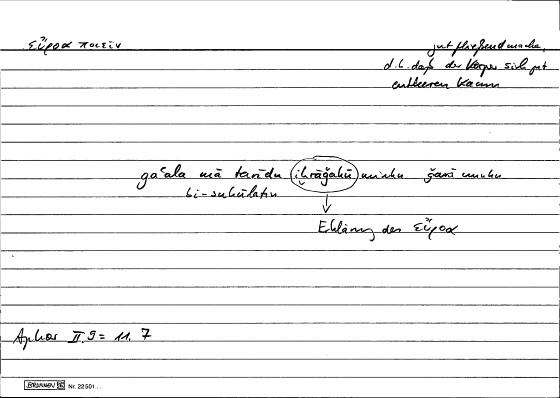 εὔροα ποιεῖν
gut fließend machen,
d.h. daß der Körper sich gut
entleeren kann
ǧaʿala mā turīdu iḫrāǧahū minhu ǧarā minhu
bi-suhūlatin
Erklärung der εὔροα
Aphor II.9 = 11. 7
BRUNNEN Nr. 22501